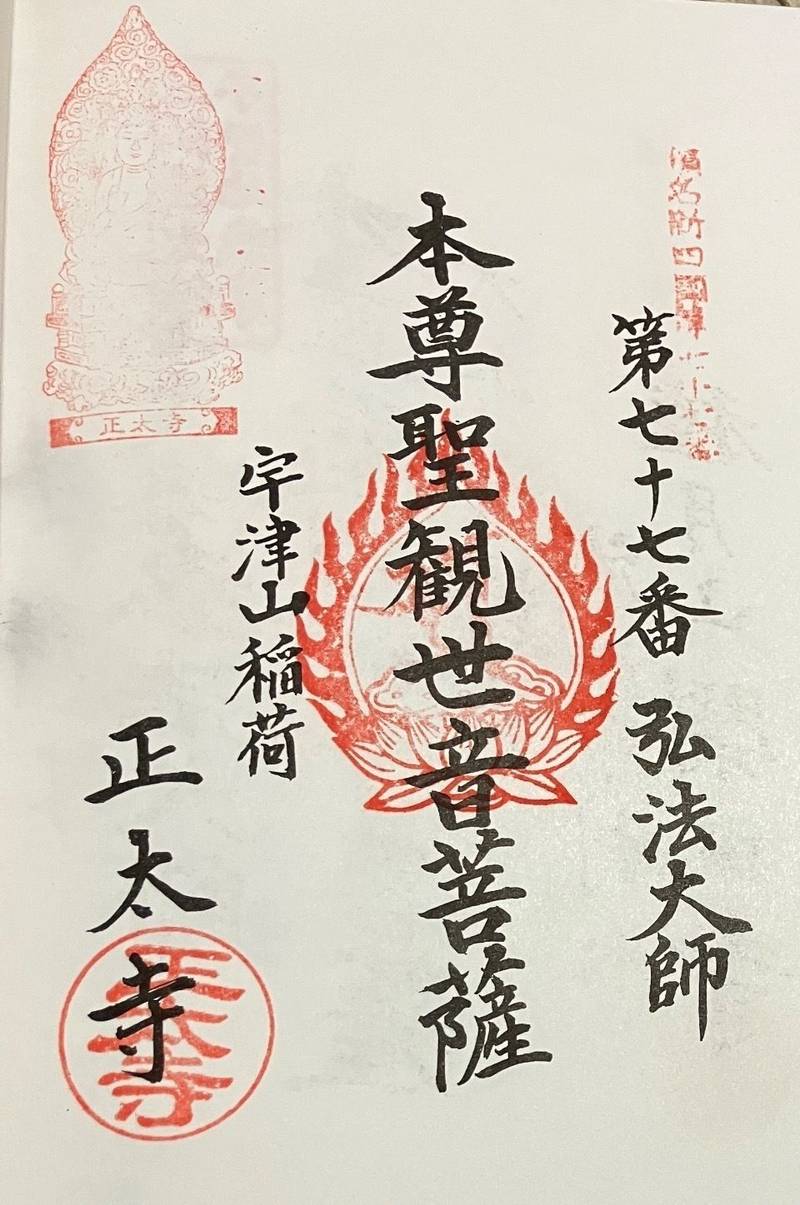 第七十七番 弘法大師
本尊聖観世音菩薩
宇津山稲荷
正太寺
正太寺
正太寺